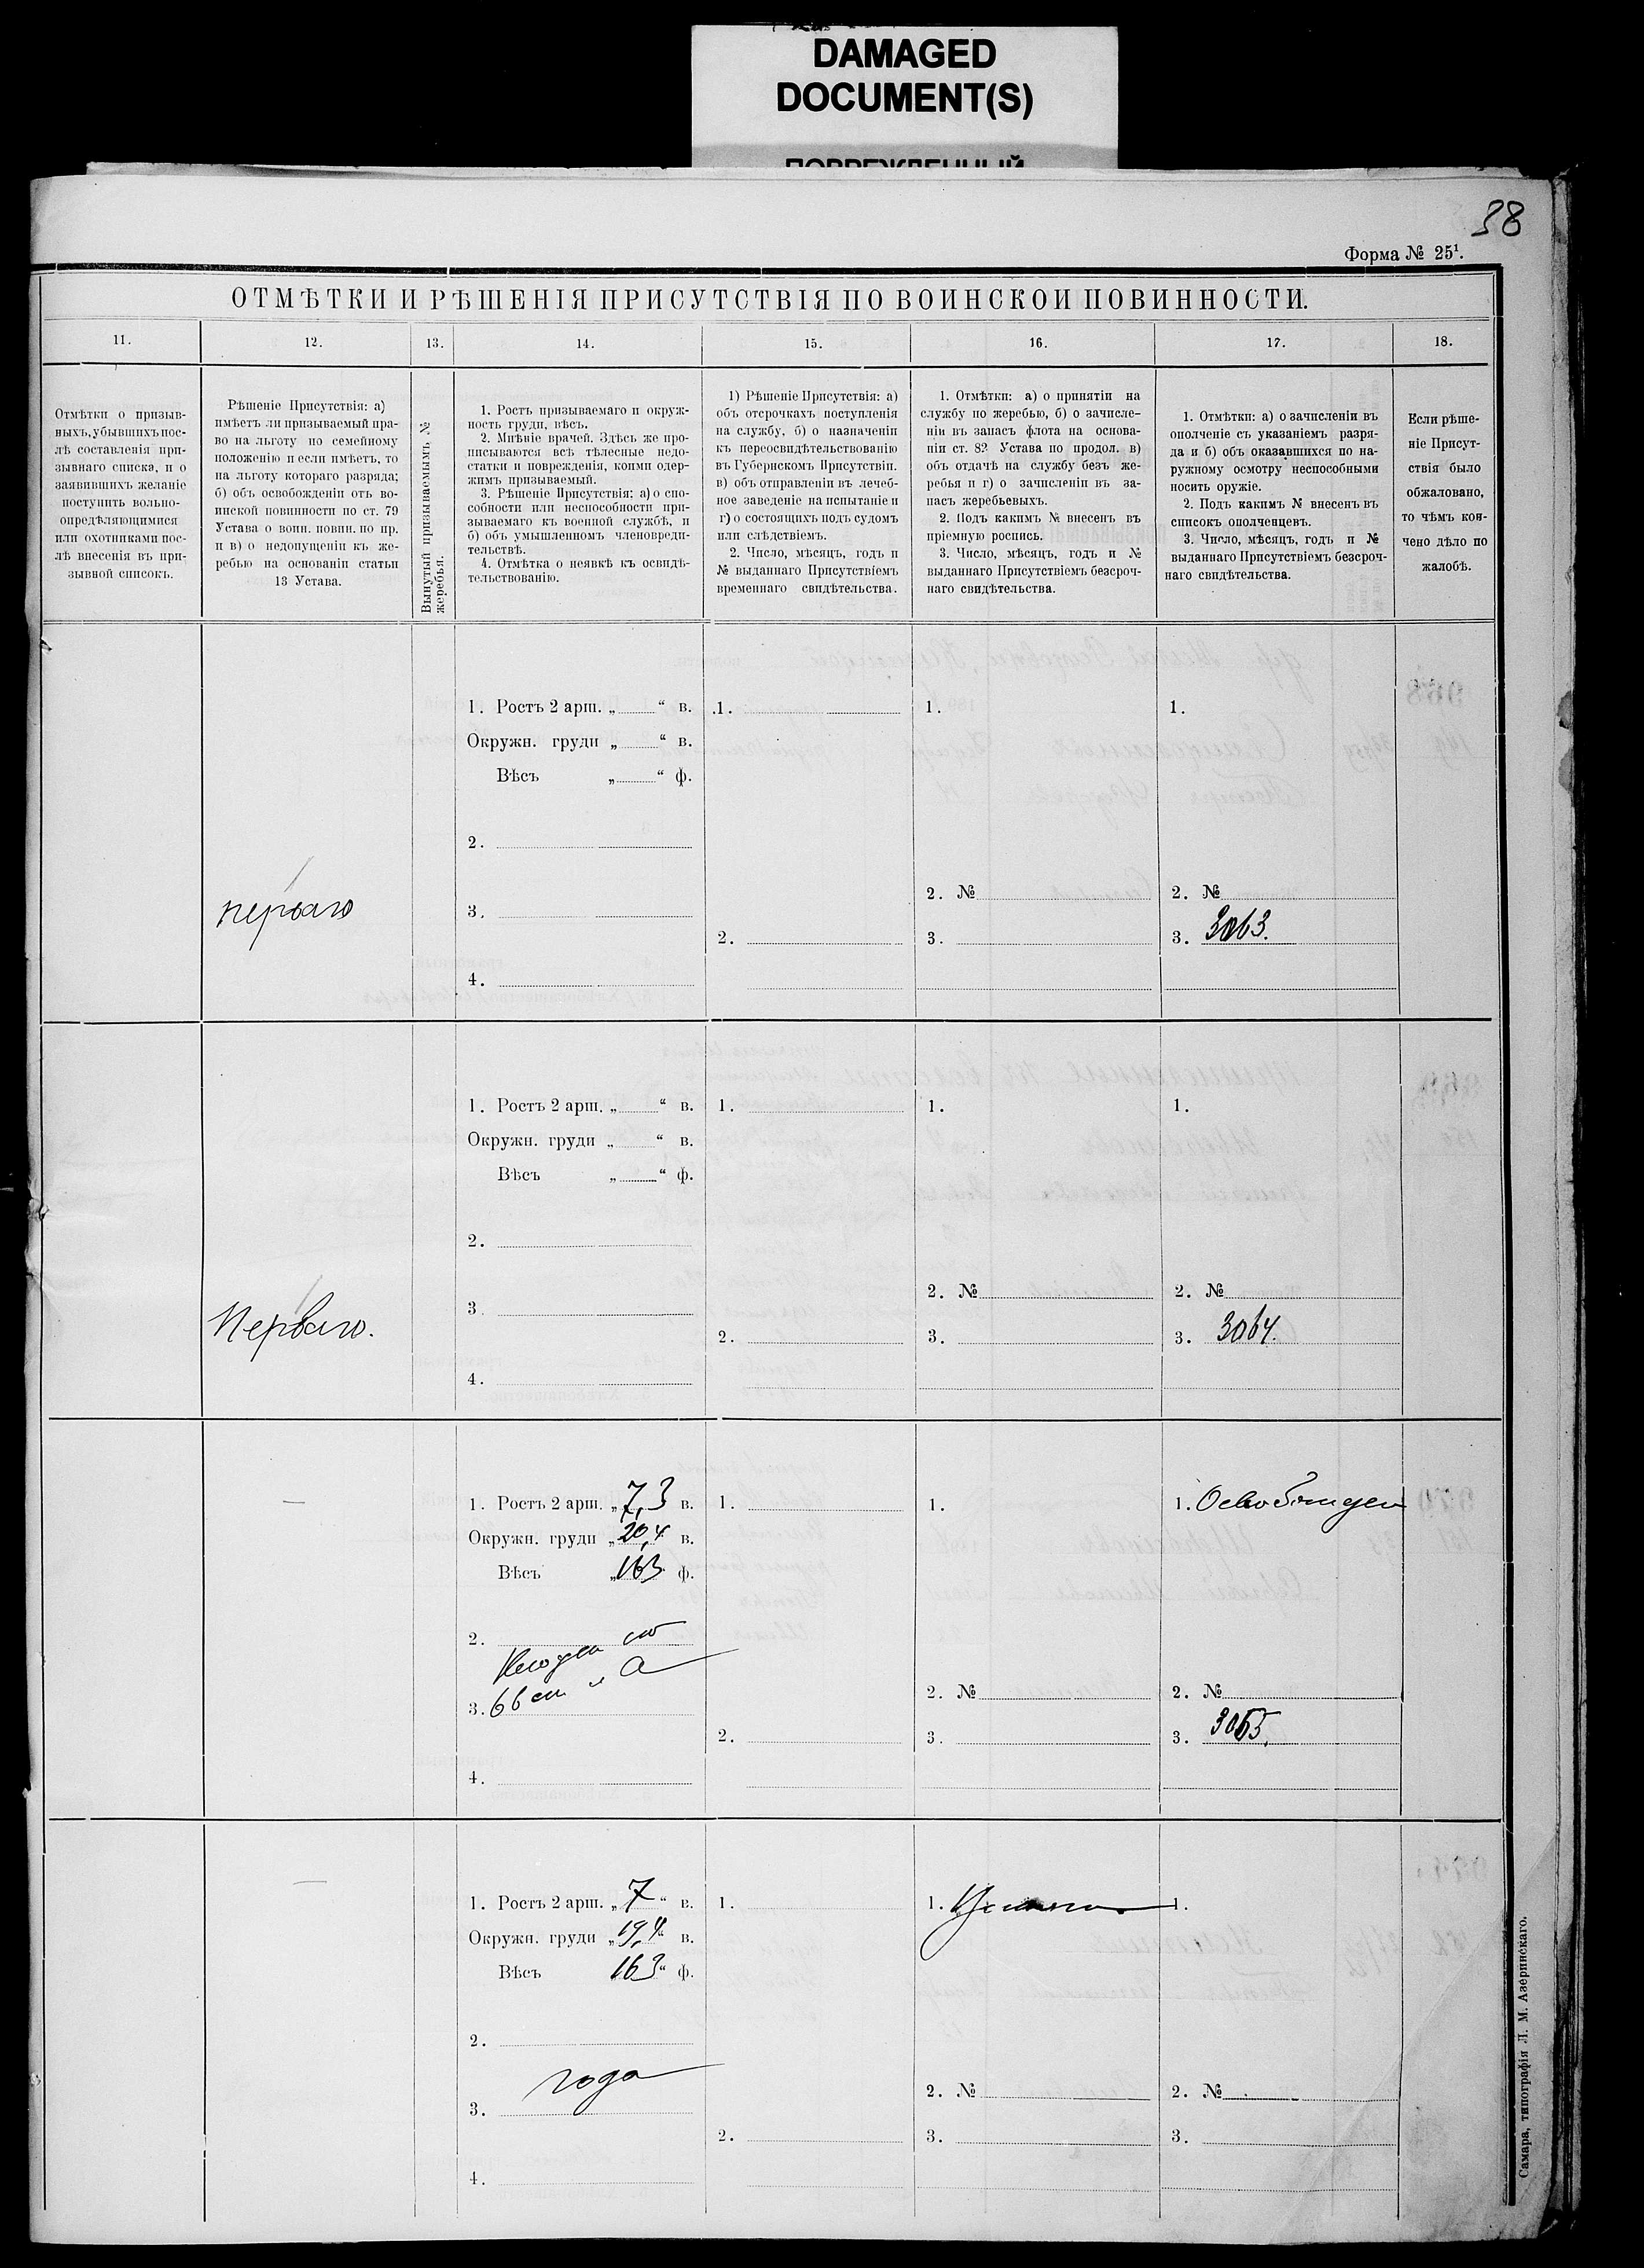 DAMAGED
DOCUMENT(S)
38
Форма № 25¹.
ОТМѢТКИ И РѢШЕНІЯ ПРИСУТСТВІЯ ПО ВОИНСКОЙ ПОВИННОСТИ.
11.
12.
13.
14.
15.
16.
17.
18.
Отмѣтки о призыв-
ныхъ, убывшихъ пос-
лѣ составленія при-
зывнаго списка, и о
заявившихъ желаніе
поступить вольно-
опредѣляющимися
или охотниками пос-
лѣ внесенія въ при-
зывной списокъ.
Рѣшеніе Присутствія: а)
имѣетъ ли призываемый пра-
во на льготу по семейному
положенію и если имѣетъ, то
на льготу котораго разряда;
б) объ освобожденіи отъ во-
инской повинности по ст. 79
Устава о воин. повин. по пр.
и в) о недопущеніи къ же-
ребью на основаніи статьи
13 Устава.
Вынутый призываемымъ №
жеребья.
1. Ростъ призываемаго и окруж-
ность груди, вѣсъ.
2. Мнѣніе врачей. Здѣсь же про-
писываются всѣ тѣлесные недо-
статки и поврежденія, коими одер-
жимъ призываемый.
3. Рѣшеніе Присутствія: а) о спо-
собности или неспособности при-
зываемаго къ военной службѣ, и
б) объ умышленномъ членовреди-
тельствѣ.
4. Отмѣтка о неявкѣ къ освидѣ-
тельствованію.
1) Рѣшеніе Присутствія: а)
объ отсрочкахъ поступленія
на службу, б) о назначеніи
къ переосвидѣтельствованію
въ Губернскомъ Присутствіи.
в) объ отправленіи въ лечеб-
ное заведеніе на испытаніе и
г) о состоящихъ подъ судомъ
или слѣдствіемъ.
2. Число, мѣсяцъ, годъ и
№ выданнаго Присутствіемъ
временнаго свидѣтельства.
1. Отмѣтки: а) о принятіи на
службу по жеребью, б) о зачисле-
ніи въ запасъ флота на основа-
ніи ст. 82 Устава по продол. в)
объ отдачѣ на службу безъ же-
ребья и г) о зачисленіи въ за-
пасъ жеребьевыхъ.
2. Подъ какимъ № внесенъ въ
пріемную роспись.
3. Число, мѣсяцъ, годъ и №
выданнаго Присутствіемъ безсроч-
наго свидѣтельства.
1. Отмѣтки: а) о зачисленіи въ
ополченіе съ указаніемъ разря-
да и б) объ оказавшихся по на-
ружному осмотру неспособными
носить оружіе.
2. Подъ какимъ № внесенъ въ
списокъ ополченцевъ.
3. Число, мѣсяцъ, годъ и №
выданнаго Присутствіемъ безсроч-
наго свидѣтельства.
Если рѣше-
ніе Присут-
ствія было
обжаловано,
то чѣмъ кон-
чено дѣло по
жалобѣ.
перваго
1. Ростъ 2 арш. „ “ в.
Окружн. груди „ “ в.
Вѣсъ „ “ ф.
2.
3.
4.
1.
2.
1.
2. №
3.
1.
2. №
3. 3063.
Перваго.
1. Ростъ 2 арш. „ “ в.
Окружн. груди „ “ в.
Вѣсъ „ “ ф.
2.
3
4.
1.
2.
1.
2. №
3.
1.
2. №
3. 3064.
—
1. Ростъ 2 арш. „7,3 в.
Окружн. груди „20,4 в.
Вѣсъ „163 ф.
2.
3. 66 ст. А
4.
1.
2.
1.
2. №
3.
1. Освобожден
2. №
3. 3065.
—
1. Ростъ 2 арш. „7“ в.
Окружн. груди „19,4“ в.
Вѣсъ 163“ ф.
2.
года
3.
4.
1.
2.
1.
2. №
3.
1.
2. №
3.
Самара, типографія Л. М. Азеринскаго.